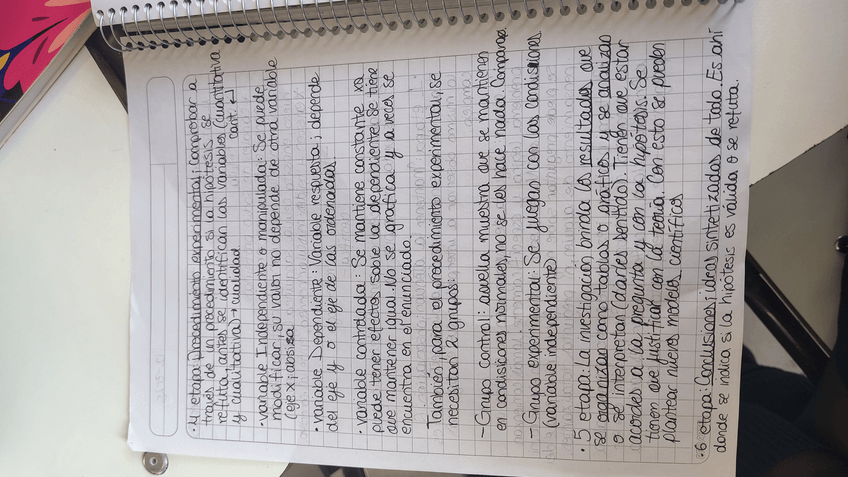 •4 etapa: Procedimiento experimental; Comprobar a
través de un procedimiento si la hipótesis se
refuta, antes se identifican las variables (cuantitativa
y cualitativa) → cualidad cant. ↵
• Variable Independiente o manipulada: Se puede
modificar, su valor no depende de otra variable
(eje x; absisa
• Variable Dependiente: Variable respuesta; depende
del eje y o el eje de las ordenadas.
• Variable controlada: Se mantiene constante xq
puede tener efectos sobre la dependiente. Se tiene
que mantener igual. No se grafica y a veces se
encuentra en el enunciado.
También, para el procedimiento experimental, se
necesitan 2 grupos:
- Grupo Control: aquella muestra que se mantienen
en condisiones normales, no se les hace nada. Comparar
- Grupo experimental: Se juegan con las condisiones.
(variable independiente)
• 5 etapa: La investigación brinda los resultados que
se organizan como tablas o gráficos y se analizan
o se interpretan (darles sentido). Tienen que estar
acordes a la pregunta y con la hipótesis. Se
tienen que justificar con la teoría. Con esto se pueden
plantear nuevos modelos científicos
•6 etapa: Conclusiones; ideas sintetizadas de todo. Es ahí
donde se indica si la hipótesis es válida o se refuta.